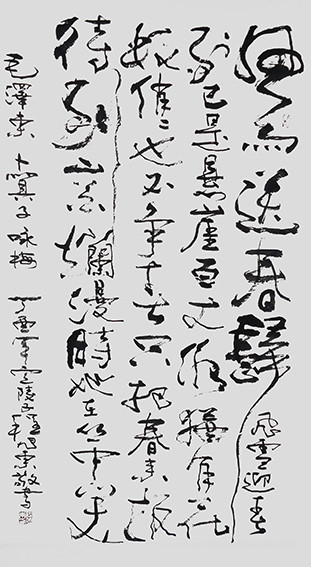 風雨送春歸飛雪迎春
到已是悬崖百丈冰猶有花
枝俏〻也不争春只把春来报
待到山花爛漫時她在丛中笑
毛澤東卜算子咏梅丁酉年敬書